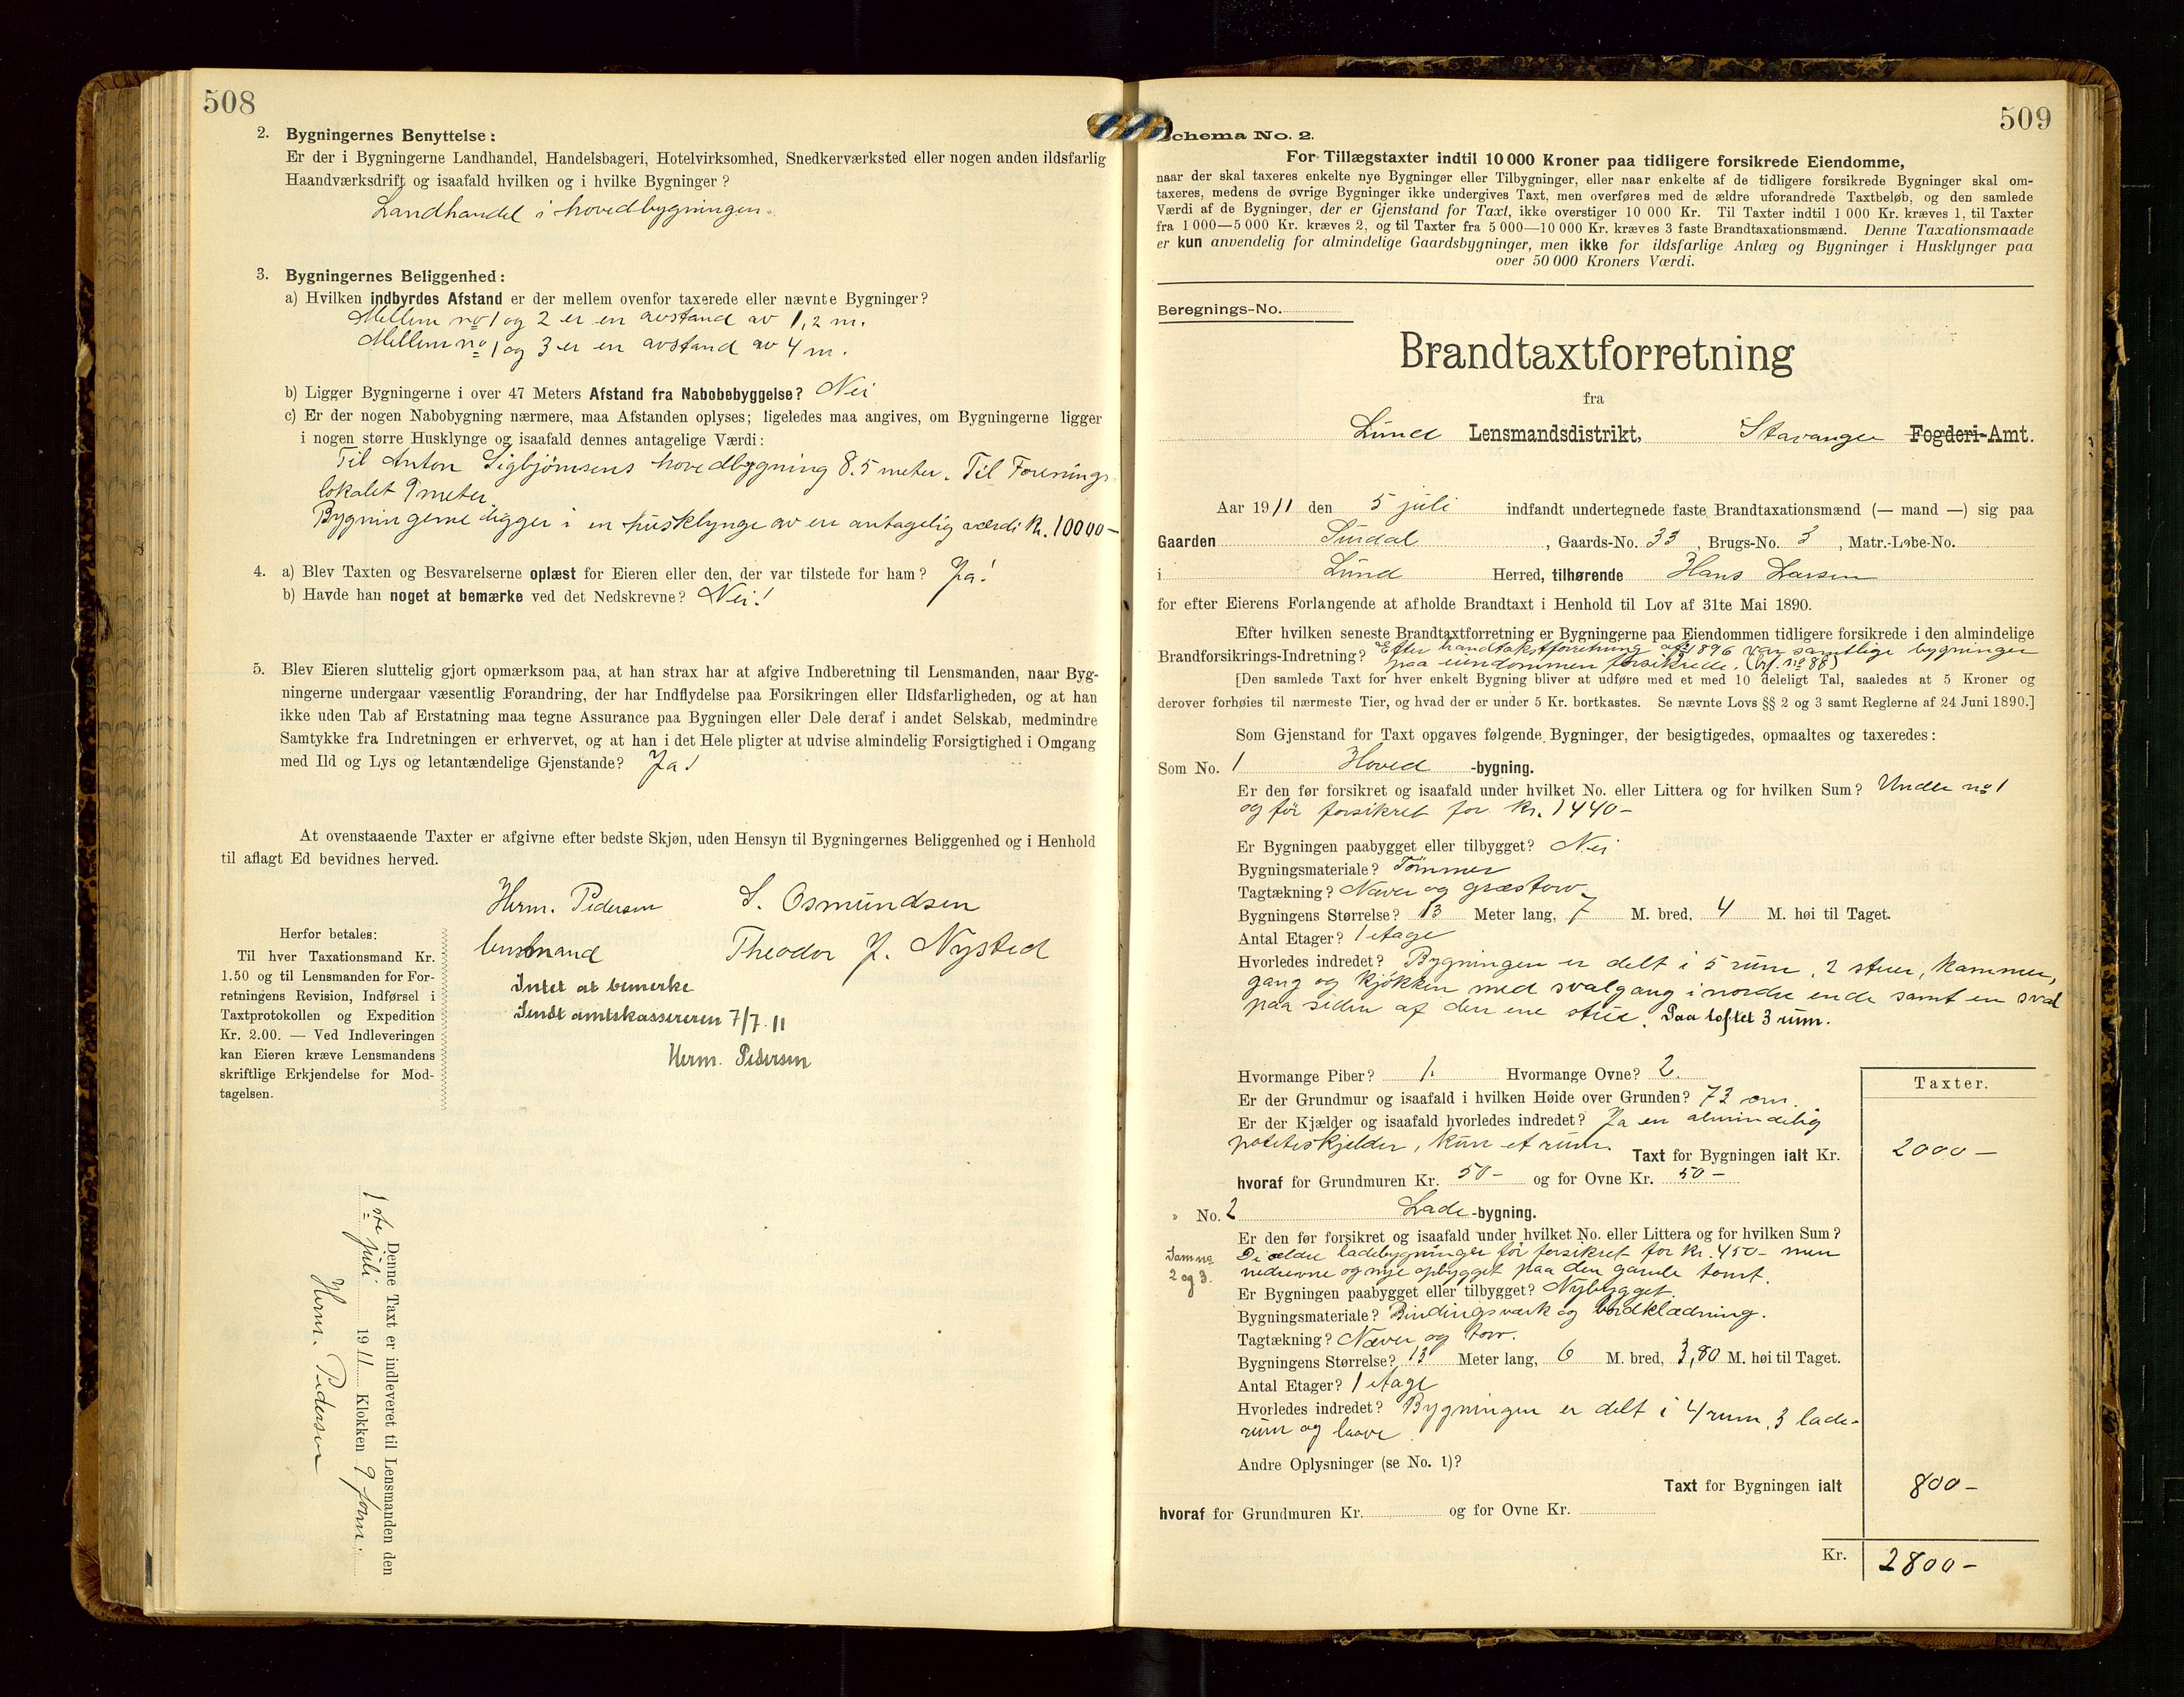 508
2. Bygningernes Benyttelse:
Er der i Bygningerne Landhandel, Handelsbageri, Hotelvirksomhed, Snedkerværksted eller nogen anden ildsfarlig
Haandværksdrift og isaafald hvilken og i hvilke Bygninger?
Landhandel i hovedbygningen.
3. Bygningernes Beliggenhed:
a) Hvilken indbyrdes Afstand er der mellem ovenfor taxerede eller nævnte Bygninger?
Mellem no 1 og 2 er en avstand av 1,2 m.
Mellem no 1 og 3 er en avstand av 4 m.
b) Ligger Bygningerne i over 47 Meters Afstand fra Nabobebyggelse? Nei
c) Er der nogen Nabobygning nærmere, maa Afstanden oplyses; ligeledes maa angives, om Bygningerne ligger
i nogen større Husklynge og isaafald dennes antagelige Værdi:
Til Anton Sigbjørnsens hovedbygning 8.5 meter. Til Forenings
lokalet 9 meter.
Bygningerne ligger i en husklynge av en antagelig værdi kr. 10000-
4. a) Blev Taxten og Besvarelserne oplæst for Eieren eller den, der var tilstede for ham? Ja!
b) Havde han noget at bemærke ved det Nedskrevne? Nei!
5. Blev Eieren sluttelig gjort opmærksom paa, at han strax har at afgive Indberetning til Lensmanden, naar Byg-
ningerne undergaar væsentlig Forandring, der har Indflydelse paa Forsikringen eller Ildsfarligheden, og at han
ikke uden Tab af Erstatning maa tegne Assurance paa Bygningen eller Dele deraf i andet Selskab, medmindre
Samtykke fra Indretningen er erhvervet, og at han i det Hele pligter at udvise almindelig Forsigtighed i Omgang
med Ild og Lys og letantændelige Gjenstande? Ja!
At ovenstaaende Taxter er afgivne efter bedste Skjøn, uden Hensyn til Bygningernes Beliggenhed og i Henhold
til aflagt Ed bevidnes herved.
Herm. Pedersen S. Osmundsen
lensmand Theodor J. Nysted
Intet at bemerke
Sendt amtskassereren 7/7. 11
Herm. Pedersen
Herfor betales:
Til hver Taxationsmand Kr.
1.50 og til Lensmanden for For-
retningens Revision, Indførsel i
Taxtprotokollen og Expedition
Kr. 2.00. — Ved Indleveringen
kan Eieren kræve Lensmandens
skriftlige Erkjendelse for Mod-
tagelsen.
Denne Taxt er indleveret til Lensmanden den
1ste juli 1911 Klokken 9 form.
Herm. Pedersen
509
Schema No. 2.
For Tillægstaxter indtil 10 000 Kroner paa tidligere forsikrede Eiendomme,
naar der skal taxeres enkelte nye Bygninger eller Tilbygninger, eller naar enkelte af de tidligere forsikrede Bygninger skal om-
taxeres, medens de øvrige Bygninger ikke undergives Taxt, men overføres med de ældre uforandrede Taxtbeløb, og den samlede
Værdi af de Bygninger, der er Gjenstand for Taxt, ikke overstiger 10 000 Kr. Til Taxter indtil 1 000 Kr. kræves 1, til Taxter
fra 1 000—5 000 Kr. kræves 2, og til Taxter fra 5 000—10 000 Kr. kræves 3 faste Brandtaxationsmænd. Denne Taxationsmaade
er kun anvendelig for almindelige Gaardsbygninger, men ikke for ildsfarlige Anlæg og Bygninger i Husklynger paa
over 50 000 Kroners Værdi.
Beregnings-No.
Brandtaxtforretning
fra
Lund Lensmandsdistrikt, Stavanger Fogderi-Amt.
Aar 1911 den 5 juli indfandt undertegnede faste Brandtaxationsmænd (— mand —) sig paa
Gaarden Surdal, Gaards-No. 33, Brugs-No. 3, Matr.-Løbe-No.
i Lund Herred, tilhørende Hans Larsen
for efter Eierens Forlangende at afholde Brandtaxt i Henhold til Lov af 31te Mai 1890.
Efter hvilken seneste Brandtaxtforretning er Bygningerne paa Eiendommen tidligere forsikrede i den almindelige
Brandforsikrings-Indretning? Efter brandtakstforretning af 1896 var samtlige bygninger
paa eiendommen forsikrede. (brf. no 88)
[Den samlede Taxt for hver enkelt Bygning bliver at udføre med et med 10 deleligt Tal, saaledes at 5 Kroner og
derover forhøies til nærmeste Tier, og hvad der er under 5 Kr. bortkastes. Se nævnte Lovs §§ 2 og 3 samt Reglerne af 24 Juni 1890.]
Som Gjenstand for Taxt opgaves følgende Bygninger, der besigtigedes, opmaaltes og taxeredes:
Som No. 1 Hoved-bygning.
Er den før forsikret og isaafald under hvilket No. eller Littera og for hvilken Sum? Under no 1
og før forsikret for kr. 1440-
Er Bygningen paabygget eller tilbygget? Nei
Bygningsmateriale? Tømmer
Tagtækning? Næver og græstorv.
Bygningens Størrelse? 13 Meter lang, 7 M. bred, 4 M. høi til Taget.
Antal Etager? 1 etage
Hvorledes indredet? Bygningen er delt i 5 rum, 2 stuer, kammer,
gang og kjøkken med svalgang i nordre ende samt en sval
paa siden af den ene stue. Paa loftet 3 rum.
Hvormange Piber? 1. Hvormange Ovne? 2.
Taxter.
Er der Grundmur og isaafald i hvilken Høide over Grunden? 73 cm.
Er der Kjælder og isaafald hvorledes indredet? Ja en almindelig
poteteskjelder, kun et rum. Taxt for Bygningen ialt Kr. 2000 —
hvoraf for Grundmuren Kr. 50 - og for Ovne Kr. 50 -
» No. 2 Lade-bygning.
Er den før forsikret og isaafald under hvilket No. eller Littera og for hvilken Sum?
Som no 2 og 3.
De ældre ladebygninger før forsikret for kr. 450- men
nedrevne og nye opbygget paa den gamle tomt.
Er Bygningen paabygget eller tilbygget? Nybygget.
Bygningsmateriale? Bindingsværk og bordklædning.
Tagtækning? Næver og torv.
Bygningens Størrelse? 13 Meter lang, 6 M. bred, 3,80 M. høi til Taget.
Antal Etager? 1 etage
Hvorledes indredet? Bygningen er delt i 4 rum, 3 lade-
rum og laave
Andre Oplysninger (se No. 1)?
Taxt for Bygningen ialt 800 -
hvoraf for Grundmuren Kr. og for Ovne Kr.
Kr. 2800 -